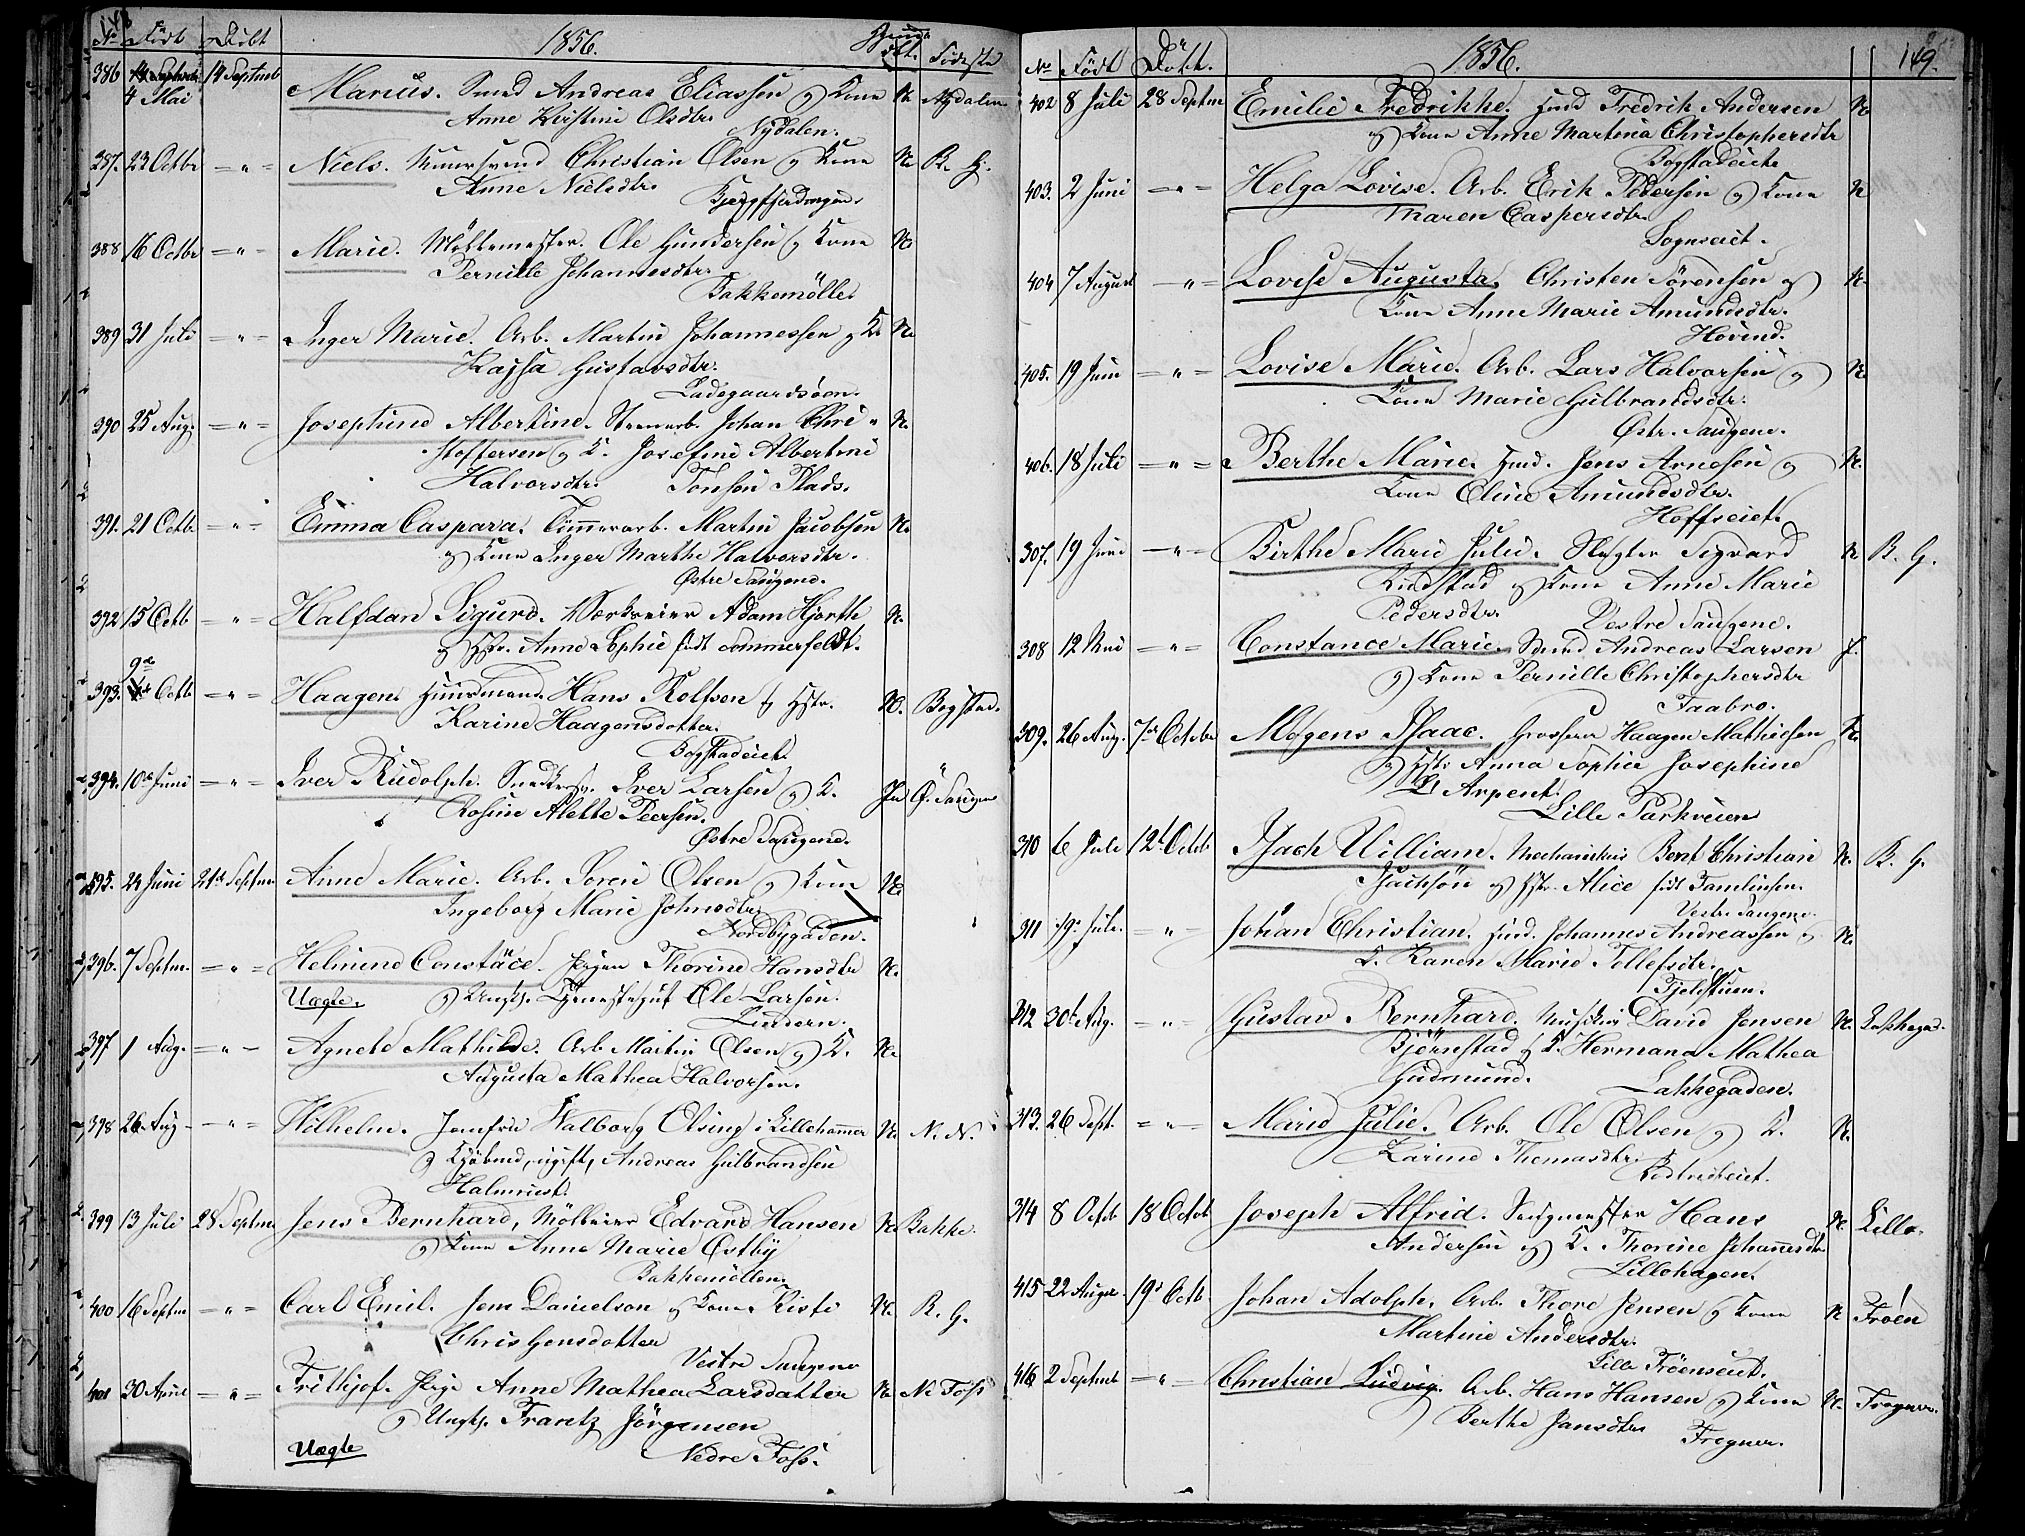 148
No Födt Döbt 1856. Hjemdøbt. Födeste
386 14 Septbr 14 Septemb Marius. Smed Andreas Eliassen og Kone N. Nydalen
4 Mai Anne Kirstine Olsdtr.
Nydalen.
387. 23 Octbr — " — Niels. Muursvend Christian Olsen og Kone N. B. G.
Anne Nielsdtr.
388 16 Octbr — " — Marie. Møllemester Ole Gundersen og Kone N.
Pernille Johannesdtr.
Bakkemølle.
389 31 Juli — " — Inger Marie. Arb. Martin Johannessen og K. N.
Kajsa Gustavsdtr.
Ladegaardsøen.
390 25 Aug. — " — Josephine Albertine. Johan Chri-
stoffersen og K. Josefine Albertine
Halvorsdtr. Tonsen Plads.
391. 21 Octb — " — Emma Caspara. Tømmerarb. Martin Jacobsen N.
og Kone Inger Marthe Halvorsdtr.
Østre Saugene.
392 15 Octb — " — Halfdan Sigurd. Værkseier Adam Hjorth N.
og Hstr. Anne Sophie født Sommerfeldt.
393. 9de Octb — " — Haagen. Huusmand Hans Rolfsen og Hstr. N. Bogstad.
Karine Haagensdotter.
Bogstadeiet
394. 10de Juni — " — Iver Rudolph. Iver Larsen og K. Ja Ø. Saugene
Rosine Alette Peersen.
Østre Saugene.
395. 24 Juni 21de Septem Anne Marie. Arb. Soren Olsen og Kone N.
Ingeborg Marie Johnsdtr.
Nordbygaden.
396. 7 Septm. — " — Helmine Constáce. Pigen Thorine Hansdtr N.
Uægte. og Ungk. Ole Larsen.
Lindern.
397 1 Aug. — " — Agnete Mathilde. Arb. Martin Olsen og K. N.
Augusta Mathea Halvorsen.
398 26 Aug — " — Wilhelm. Jomfru Walborg Olsing i Lillehammer N. N. N.
og Kjøbmd, ugift, Andreas Gulbrandsen
399 13 Juli 28 Septem Jens Bernhard, Mølleeier Edvard Hansen N. Bakke.
og Kone Anne Marie Østby
Bakkemøllen.
400 16 Septm — " — Carl Emil. Jens Danielson og Kone Kisti N. B. G.
Christensdotter
Vestre Saugene
401 30 April — " — Frithjof. Pige Anne Mathea Larsdatter N. N. Foss
og Ungk. Frantz Jörgensen
Uægte Nedre Foss.
No Födt Döbt. 1856. 149.
402 8 Juli 28 Septem Emilie Fredrikke. Husmd Fredrik Andersen N.
og Kone Anne Martina Christophersdtr
Bogstadeiet
403. 2 Juni — " — Helga Lovise. Arb. Erik Pedersen og Kone N.
Maren Caspersdtr.
Sognseiet.
404 7 August — " — Lovise Augusta. Christen Sörensen og N.
Kone Anne Marie Amundsdtr.
Hovind.
405. 19 Juni — " — Lovise Marie. Arb. Lars Halvorsen og N.
Kone Marie Gulbrandsdtr.
Østr. Saugene.
406. 18 Juli — " — Berthe Marie. Husmd. Jens Arnesen og N.
Kone Oline Amundsdtr.
Hoffseiet.
307. 19 Juni — " — Birthe Marie Julie. Slagter Sigvard N. B. G.
Rudstad og Kone Anne Marie
Pedersdtr. Vestre Saugene.
308 12 Mai — " — Constance Marie. Smed Andreas Larsen J.
og Kone Pernille Christophersdtr
Taabro.
309. 26 Aug. 7de October Mogens Isaac. Grosserer Haagen Mathiesen N.
og Hstr. Anna Sophie Josephine
D'Arpent.
Lille Parkveien
310 6 Juli 12t Octob Isach William. Mechanikus Bent Christian N. B. G.
Isachsön og Hstr. Alice født Tomlinsen.
Vestr. Saugene.
311 19 Juli. — " — Johan Christian. Husmd. Johannes Andreassen og N.
K. Karen Marie Tollefsdtr.
Fjeldstuen.
312 30t Aug. — " — Gustav Bernhard. Musikus David Jensen N. Lakkegad.
Bjørnstad og K. Hermana Mathea
Gudmund. Lakkegaden.
313. 26 Sept. — " — Marie Julie. Arb. Ole Olsen og K. N.
Karine Thomasdtr.
314 8 Octob 18 Octob Joseph Alfred. Saugmester Hans N. Lillo.
Andersen og K. Thorine Johannesdtr
Lillohagen.
415 22 August 19de Octb. Johan Adolph. Arb. Thore Jensen og Kone N. Frøen
Martine Andersdtr.
Lille Frøenseiet.
416 2 Septemb — " — Christian Ludvig. Arb. Hans Hansen og Kone N. Frogner.
Berthe Jansdtr
Frogner.